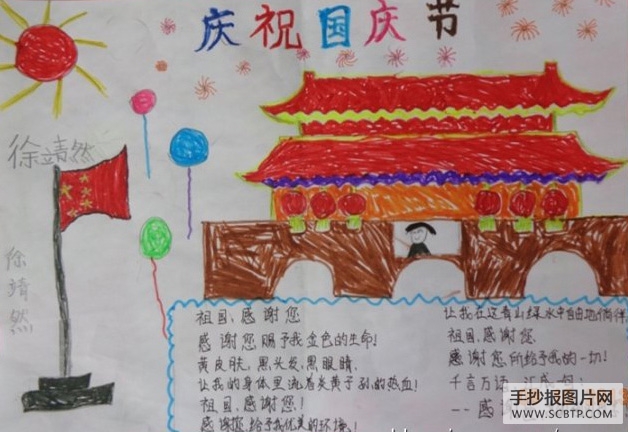 庆祝国庆节
徐靖然
徐靖然
祖国,感谢您
感谢您赐予我金色的生命!
黄皮肤,黑头发,黑眼睛,
让我的身体里流着炎黄子孙的热血!
祖国,感谢您!
感谢您给予我优美的环境!
让我在这青山绿水中自由地徜徉
祖国,感谢您
感谢您所给予我的一切!
千言万语,汇成一句:
——感谢
手抄报图片网
WWW.SCBTP.COM